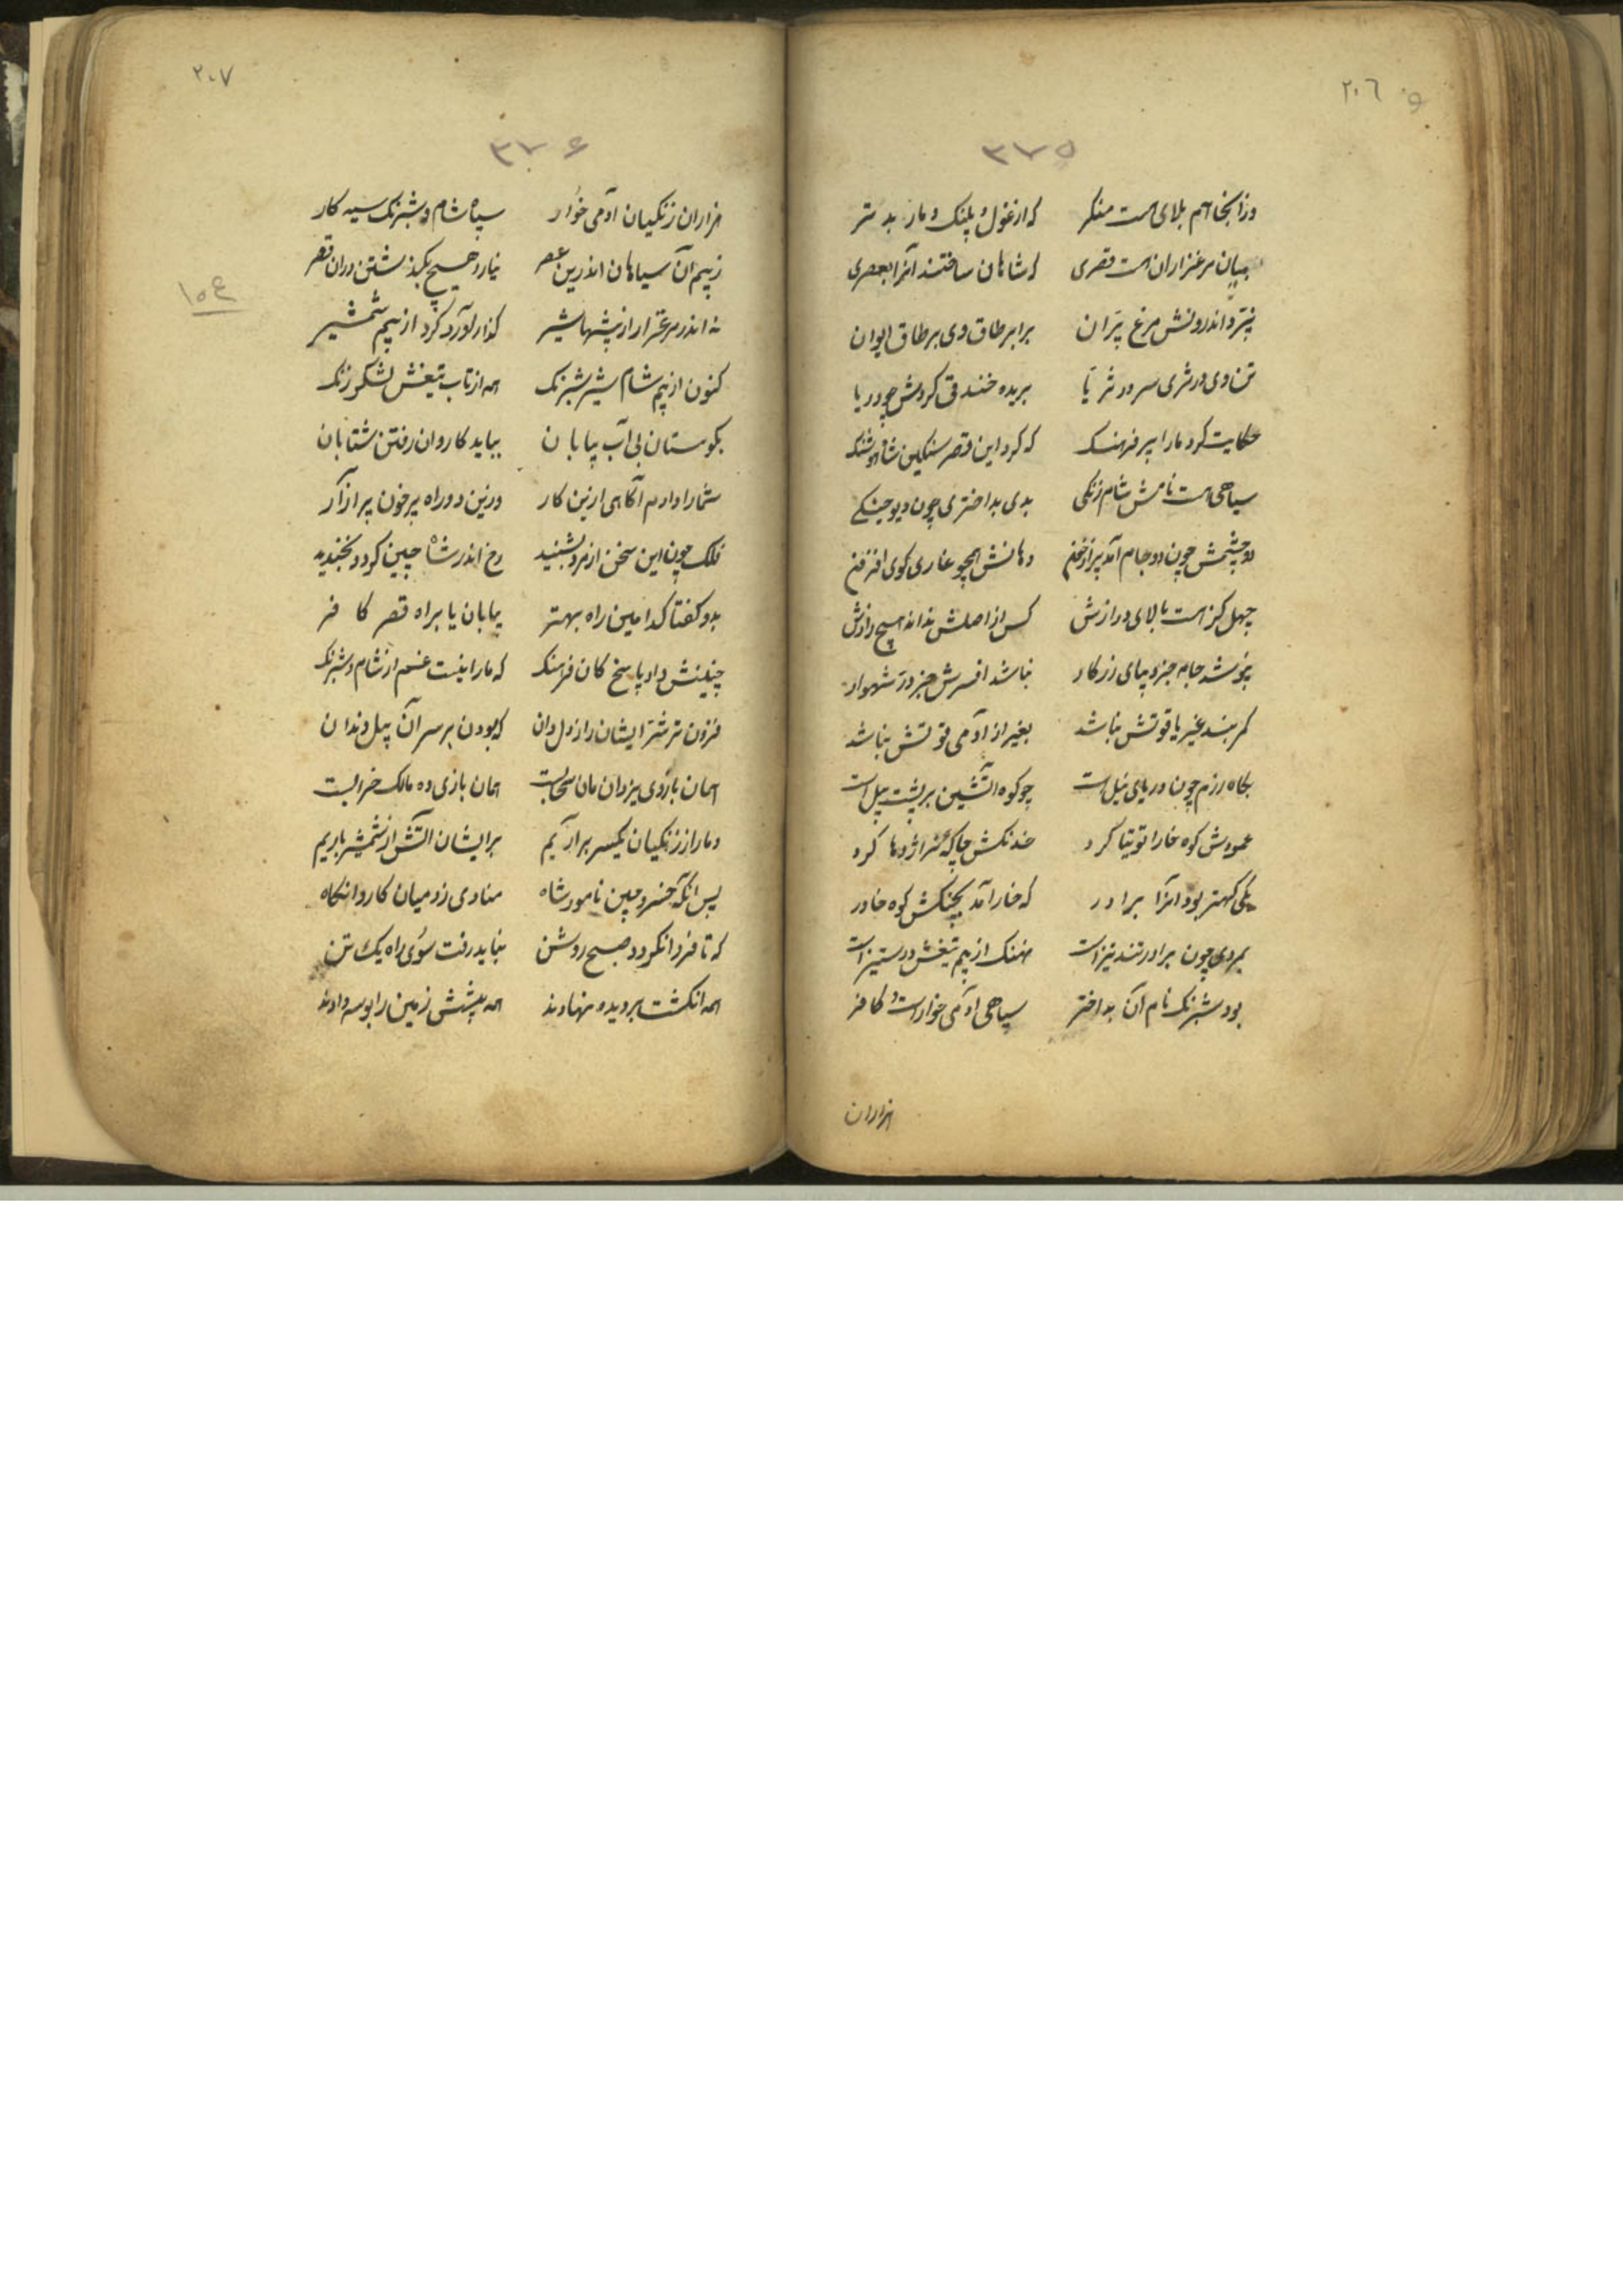 ۲۰٦
۳۷۵
وز آنجا هم بلای هست منکر که از غول و پلنک و مار بدتر
میان مرغزاران هست قصری که شاهان ساختند آنرا بعصری
نپرد اندرونش مرغ پران برابر طاق وی بر طاق ایوان
تن وی در ثری سر در ثریا بریده خندقی کردش چو دریا
حکایت کرد مارا پیر فرهنک که کرد این قصر سنکین شاه هوشنک
سیاهی هست نامش شام زنکی بدی بد اختری چون دیو جنکی
دو چشمش چون دو جام آمد پر از خون دهانش همچو غاری کوی
چهل کز هست بالای درازش کس از اصلش نداند هیچ رازش
بپوشد جامه جز دیبای زرکار نباشد افسرش جز در شهوار
کمر بند غیر یاقوتش نباشد بغیر از آدمی قوتش نباشد
بکاه رزم چون دریای نیل است چو کوه آتشین بر پشت پیل است
عمودش کوه خارا توتیا کرد خدنکش چاکها در اژدها کرد
یکی کهتر بود آنرا برادر که خار آمد بچنکش کوه خاور
بمردی چون برادر تند و تیز است نهنک از بیم تیغش در ستیز است
بود شبرنک نام آن بد اختر سیاهی آدمی خوار است و کافر
هزاران
۲۰۷
۳۷۶
هزاران زنکیان آدمی خوار سپاه شام و شبرنک سیه کار
ز بیم آن سیاهان اندرین عصر نیارد هیچ بکذشتن در آن قصر
نه اندر مرغزار از بیشها شیر کذار آورد کرد از بیم شمشیر
۱۵٤
کنون از بیم شام شیر شبرنک همه از تاب تیغش لشکر زنک
بکوهستان بی آب بیابان بباید کاروان رفتن شتابان
شمارا دادم آکاهی ازین کار درین دو راه پر خون پر آزار
فلک چون این سخن از مرد بشنید رخ اندر شاه چین کرد و بخندید
بدو کفتا کدامین راه بهتر بیابان یا براه قصر کافر
چنینش داد پاسخ کان فرهنک که مارا نیست غم از شام و شبرنک
فزون تر مشتر ایشان را ز دل دان که بودن بر سر آن پیل دندان
همان بازوی یزدان مان همان بازی ده مالک
دمار از زنکیان یکسر برآریم بر ایشان آتش از شمشیر باریم
پس آنکه خسرو چین نامور شاه منادی زد میان کاروانکاه
که تا فردا نکردد صبح روشن نباید رفت سوی راه یک تن
همه انکشت بر دیده نهادند همه پیشش زمین را بوسه دادند